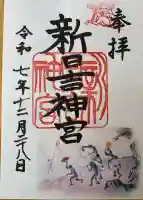 奉拝
新日吉神宮
令和七年十二月二十八日